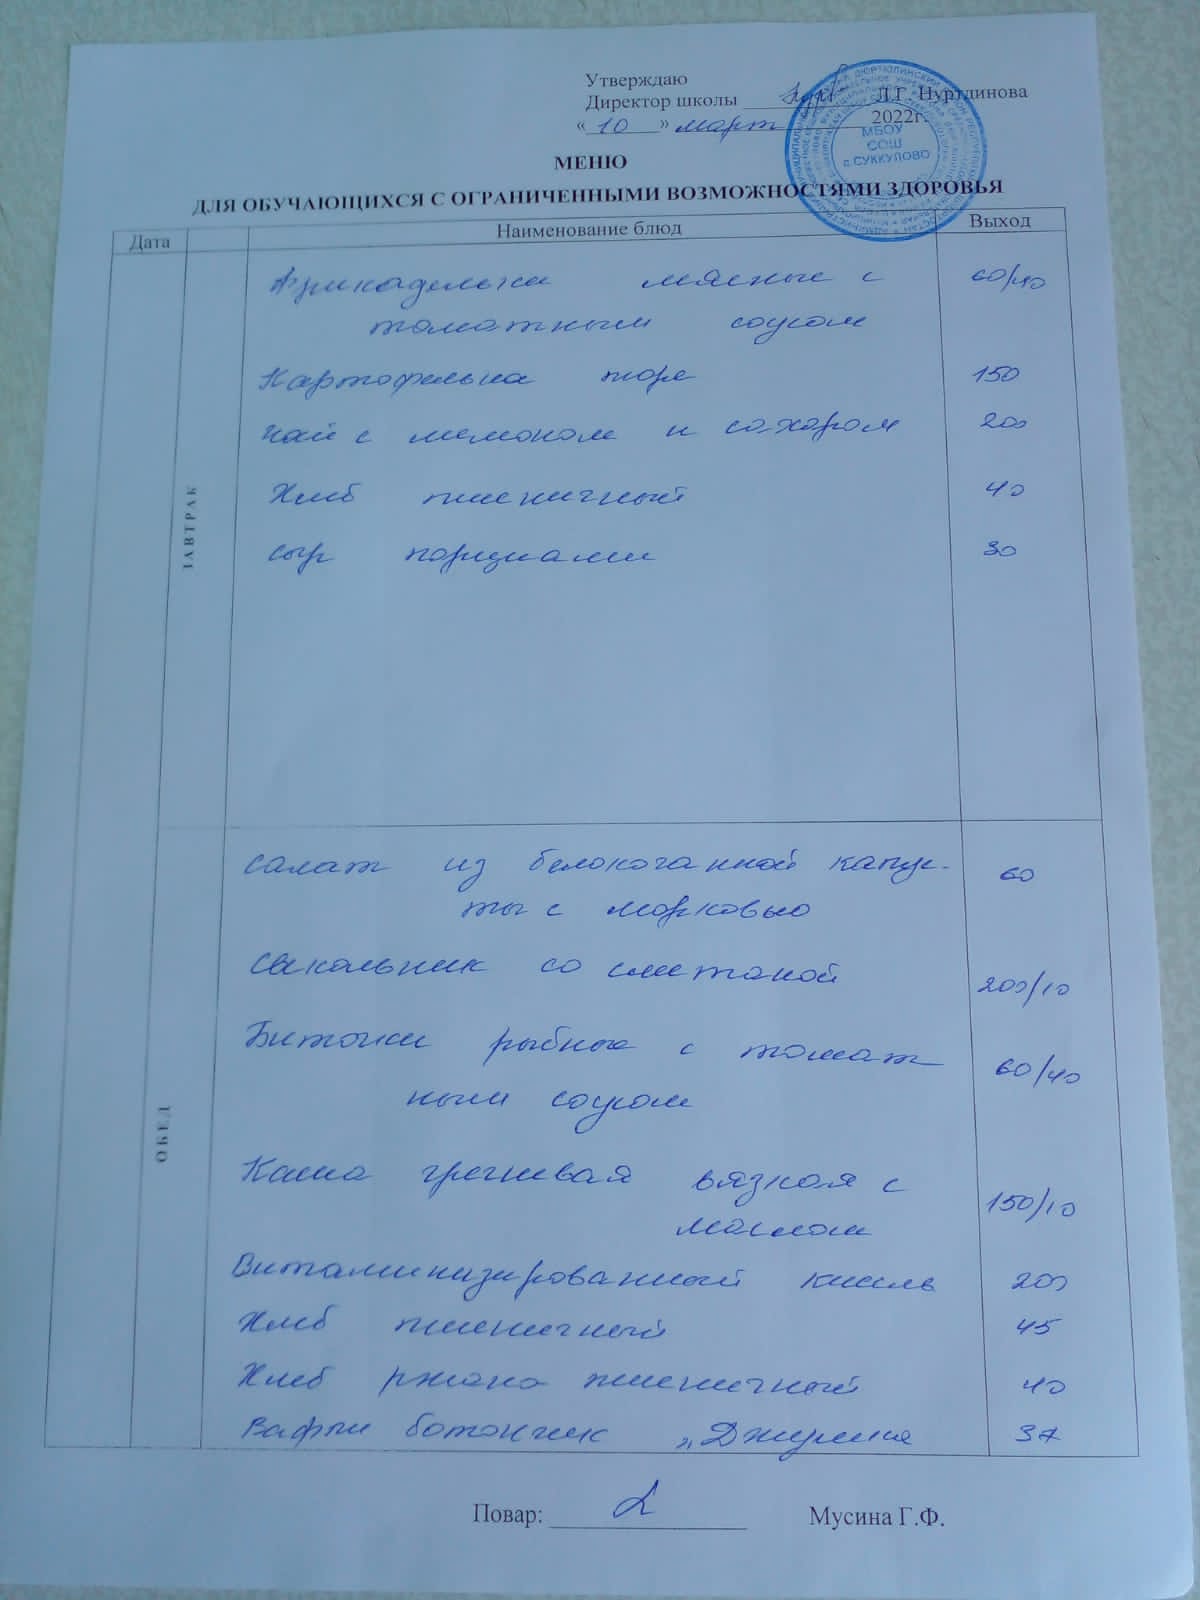 Утверждаю
Директор школы Л.Г. Нуртдинова
«10» март 2022г.
МБОУ
СОШ
с. СУККУЛОВО
МЕНЮ
ДЛЯ ОБУЧАЮЩИХСЯ С ОГРАНИЧЕННЫМИ ВОЗМОЖНОСТЯМИ ЗДОРОВЬЯ
Дата Наименование блюд Выход
ЗАВТРАК
Фрикадельки мясные с 60/40
томатным соусом
Картофельна пюре 150
Чай с лимоном и сахаром 200
Хлеб пшеничный 40
сыр порциами 30
ОБЕД
салат из белокочанной капус- 60
ты с морковью
Свекольник со сметаной 200/10
Биточки рыбные с томат 60/40
ным соусом
Каша гречневая вязкая с 150/10
маслом
Витаминизированный кисель 200
Хлеб пшеничный 45
Хлеб ржано пшеничный 40
Вафли батончик 37
Повар: Мусина Г.Ф.